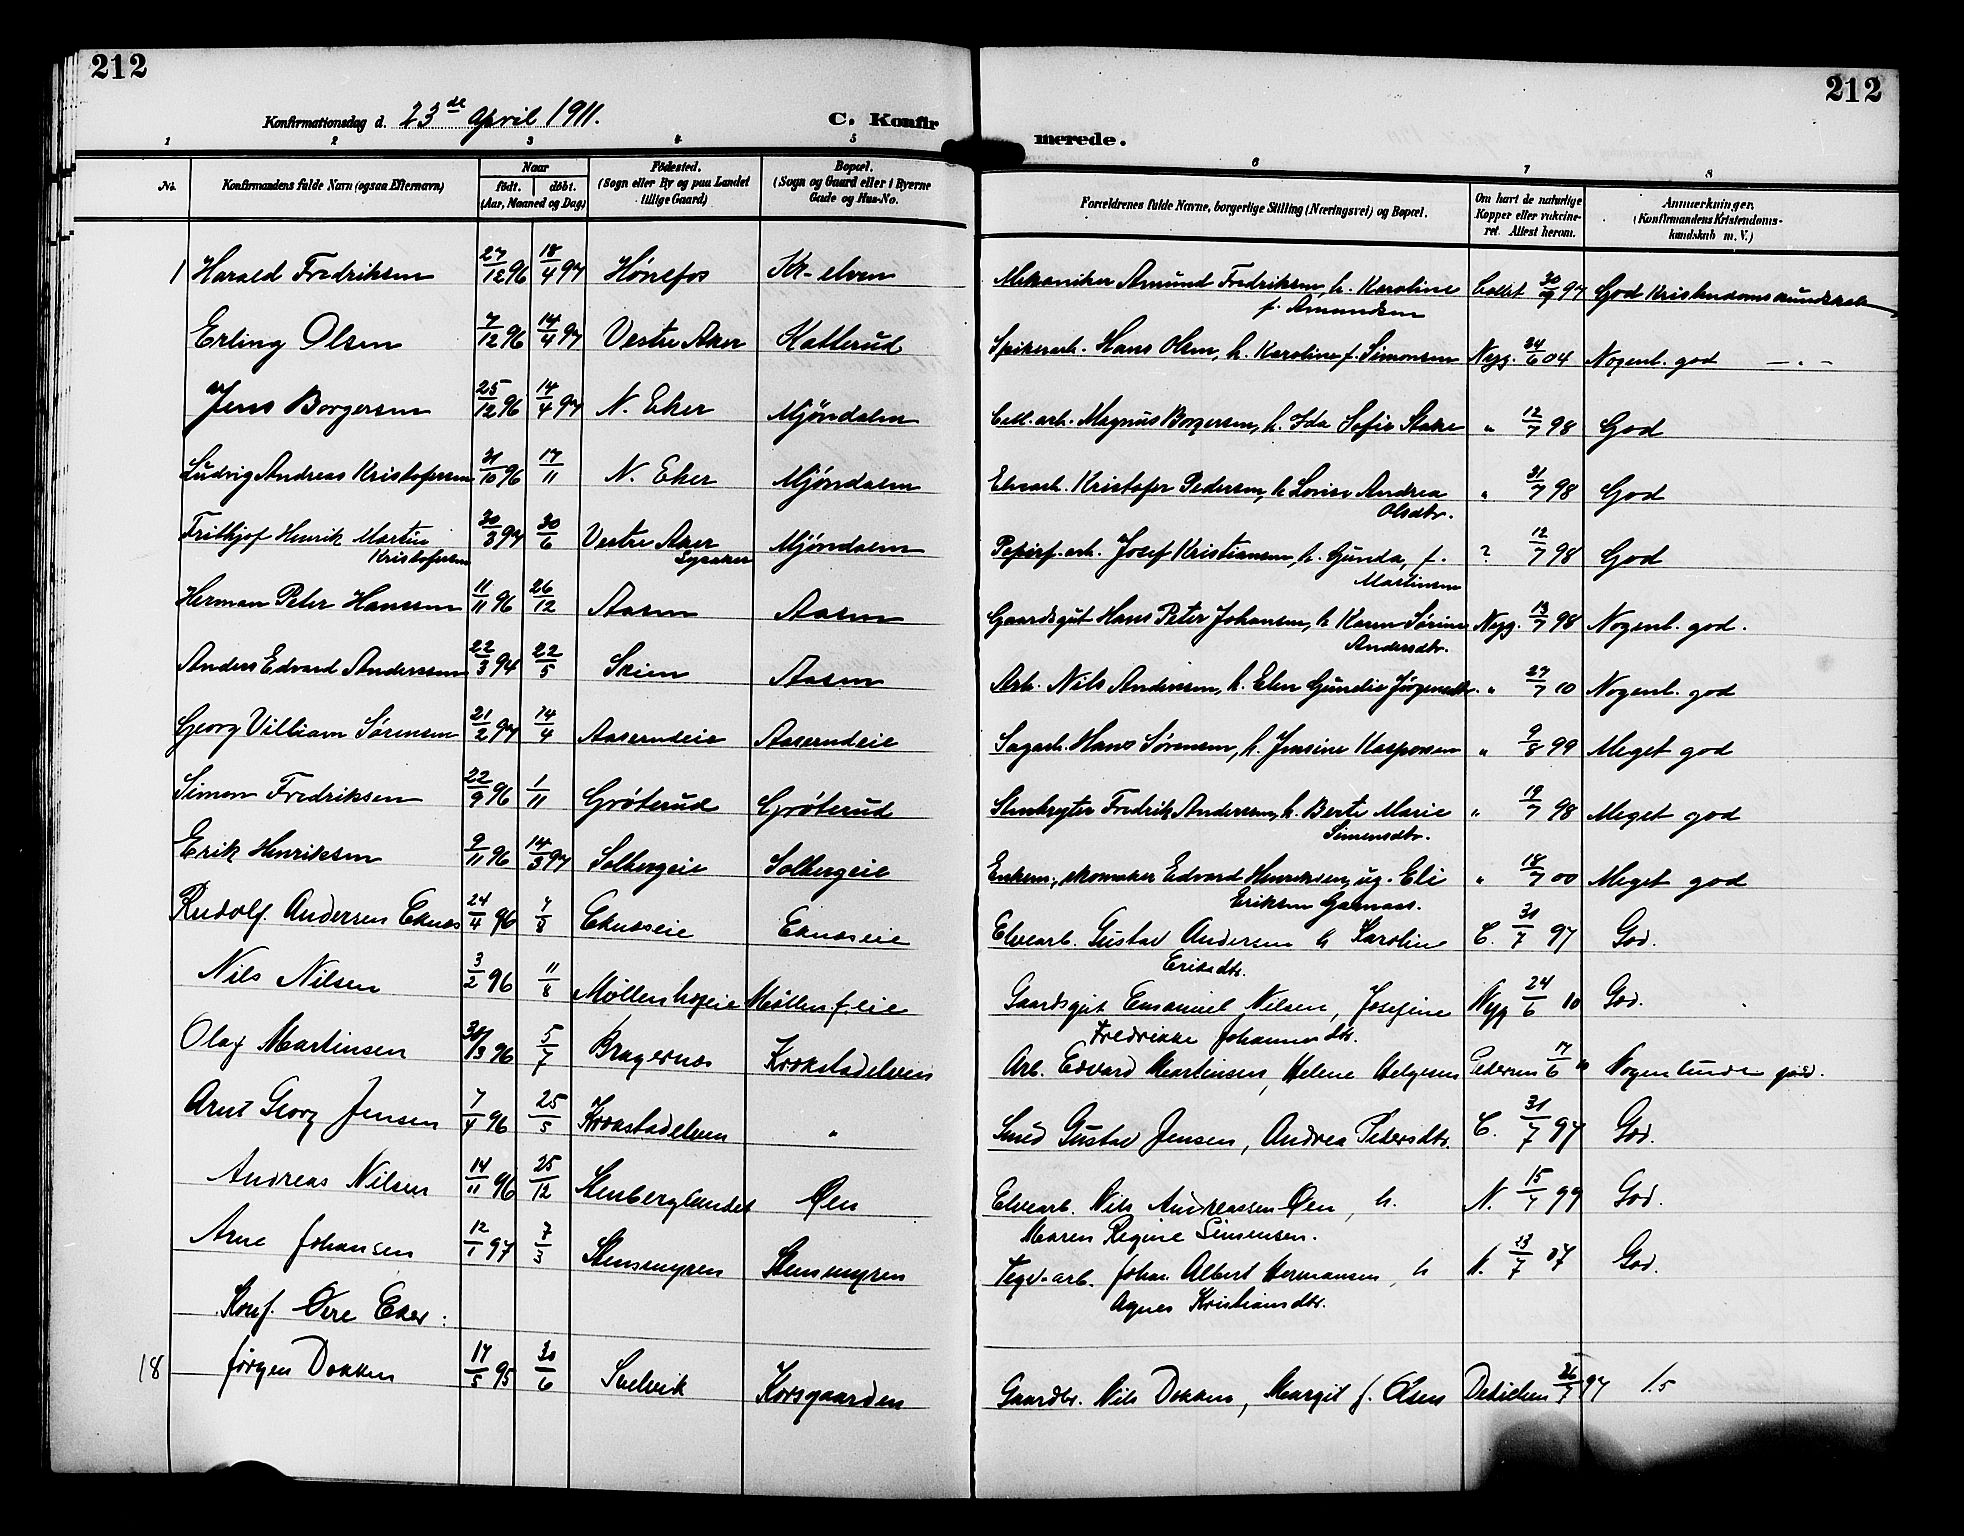 212
212
Konfirmationsdag d. 23de April 1911.
C. Konfirmerede.
1 2 3 4 5 6 7 8
No. Konfirmandens fulde Navn (ogsaa Efternavn) Naar født. døbt. (Aar, Maaned og Dag) Fødested. (Sogn eller By og paa Landet tillige Gaard) Bopæl. (Sogn og Gaard eller i Byerne Gade og Hus-No. Forældrenes fulde Navne, borgerlige Stilling (Næringsvei) og Bopæl. Om havt de naturlige Kopper eller vakcineret. Attest herom. Anmærkninger. (Konfirmandens Kristendomskundskab m. V.)
1 Harald Fredriksen 27/12 96 18/4 97 Hønefos Kr-elven Mekaniker Amund Fredriksen, h. Karoline f. Amundsen 30/9 97 God Kristendomskundskab
Erling Olsen 7/12 96 14/4 97 Vestre Aker Katterud Spikerarb. Hans Olsen, h. Karoline f. Simonsen Nyg. 24/6 04 Nogenl. god —"—
Jens Borgersen 25/12 96 14/4 97 N. Eker Mjøndalen Cell. arb. Magnus Borgersen, h. Ida Sofie Stake " 12/7 98 God
Ludvig Andreas Kristofersen 31/10 96 17/11 N. Eker Mjøndalen Elvearb. Kristofer Pedersen, h Lovise Andrea Olsdtr. " 31/7 98 God
Frithjof Henrik Martin Kristofersen 30/3 97 30/6 Vestre Aker Lysaker Mjøndalen Papirf. arb. Josef Kristiansen, h. Gunda, f. Martinsen ? 12/7 98 God
Herman Peter Hansen 11/11 96 26/12 Aasen Aasen Gaardsgut Hans Peter Johansen, h Karen Sørine Andersdtr. Nyg. 13/7 98 Nogenl. god.
Anders Edvard Anderssen 22/3 94 22/5 Skien Aasen Arb. Nils Andersen, h. Elen Gunelie Jørgensdtr. " 27/7 10 Nogenl. god
Georg Villiam Sørensen 21/2 97 14/4 Aaserudeie Aaserudeie Sagarb. Hans Sørensen, h. Jensine Kaspersen " 9/8 99 Meget god
Simon Fredriksen 22/9 96 1/11 Grøterud Grøterud Stenbryter Fredrik Andersen, h. Berte Marie Simensdtr. " 19/7 98 Meget god
Erik Henriksen 9/11 96 14/3 97 Solbergeie Solbergeie Enkem., skomaker Edvard Henriksen, ug. Eli Eriksen " 18/7 00 Meget god
Rudolf Andersen Eknes 24/4 96 7/8 Ekneseie Ekneseie Elvearb. Gustav Andersen h Karoline Eriksdtr. C. 31/7 97 God.
Nils Nilsen 3/2 96 11/8 Møllenhofeie Møllenh.eie Gaardsgut Emanuel Nilsen, Josefine Fredrikke Johannesdtr. Nyg 24/6 10 God.
Olaf Martinsen 30/3 96 5/7 Bragernes Krokstadelven Arb. Edvard Martinsen, Helene Helgesen Pedersen 17/6 " Nogenlunde god.
Arnt Georg Jensen 7/4 96 25/5 Krokstadelven " Smed Gustav Jensen, Andrea Pedersdtr. C. 31/7 97 God.
Andreas Nilsen 14/11 96 25/12 Stenberglandet Øen Elvearb. Nils Andreassen Øen, h. Maren Regine Simensen. N. 15/7 99 God.
Arne Johansen 12/1 97 7/3 Stensmyren Stensmyren Teglv.arb. Johan Albert Hermansen, h Agnes Kristiansdtr. N. 23/7 07 God.
Konf. Øvre Eker:
18 Jørgen Dokken 17/5 95 30/6 Svelvik Korsgaarden Gaardbr. Nils Dokken, Margit f. Olsen Dedichen 26/7 97 1.5